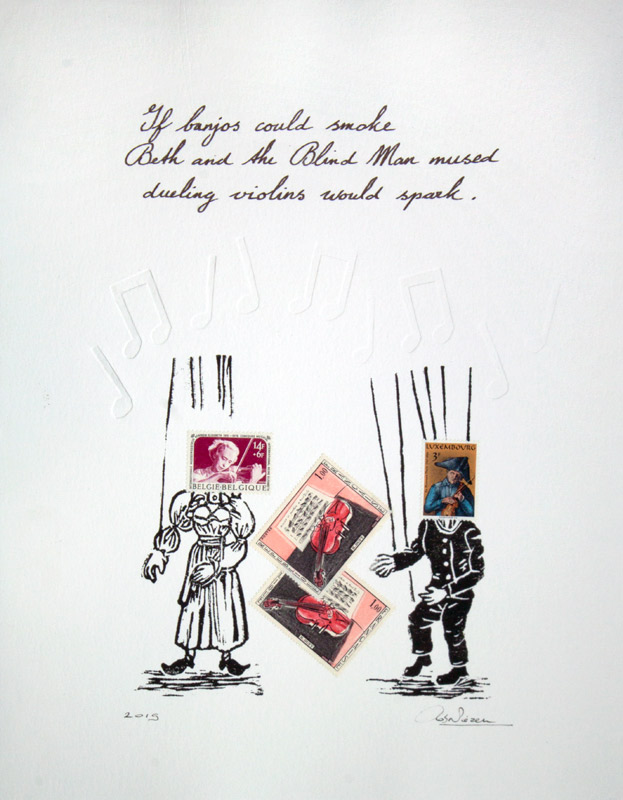 If banjos could smoke
Beth and the Blind Man mused
dueling violins would spark.
14F
+6F
BELGIE-BELGIQUE
LUXEMBOURG
3F
1,00
1,00
2019